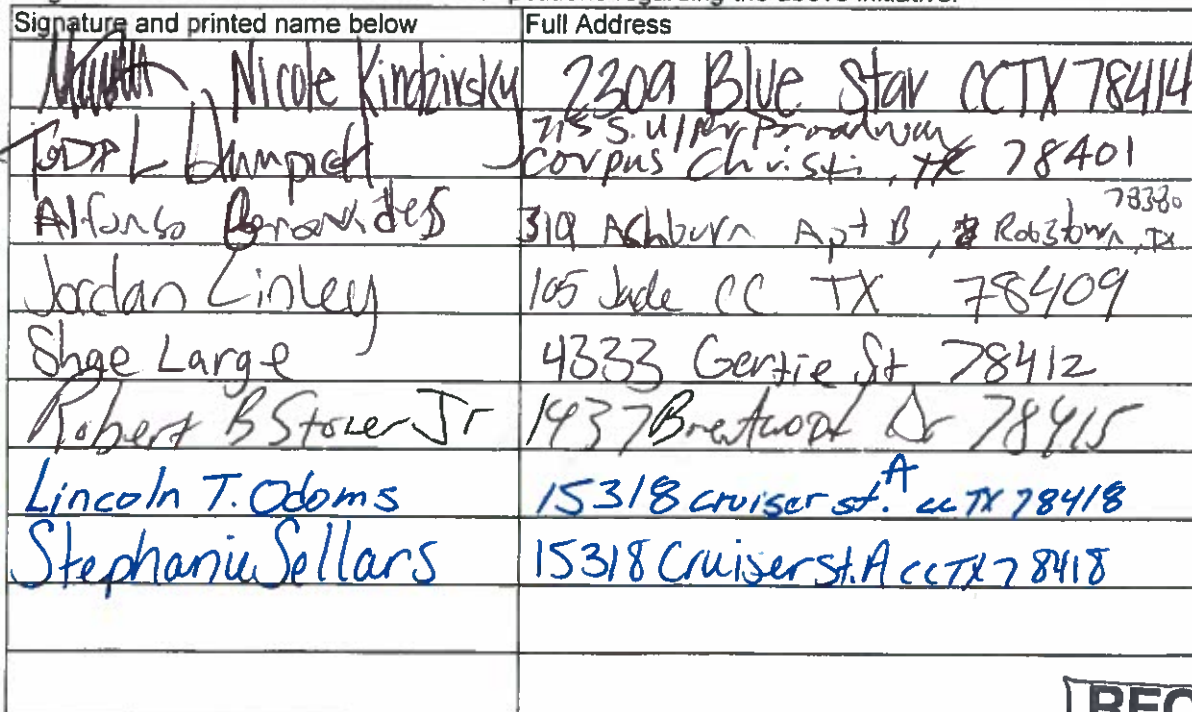 petitions regarding the above initiative.
Signature and printed name below Full Address
Nicole Kindzirsky 2309 Blue Star CCTX 78414
715 S. Upper Broadway
TODD L Corpus Christi, TX 78401
78380
Alfonso Benavides 319 Ashburn Apt B, Robstown, TX
Jordan Linley 105 Jade CC TX 78409
Shae Large 4333 Gertie St 78412
Robert B Stover Jr 1437 Brentwood Dr 78415
A
Lincoln T. Odoms 15318 cruiser st. cc TX 78418
Stephanie Sellars 15318 Cruiser St. A CCTX 78418